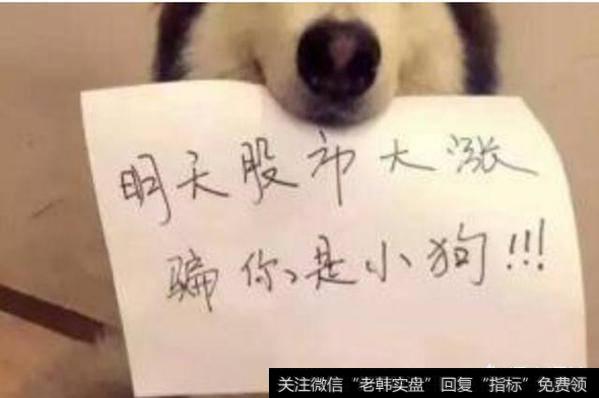 明天股市大涨
骗你是小狗!!!
关注微信“老韩实盘”回复“指标”免费领